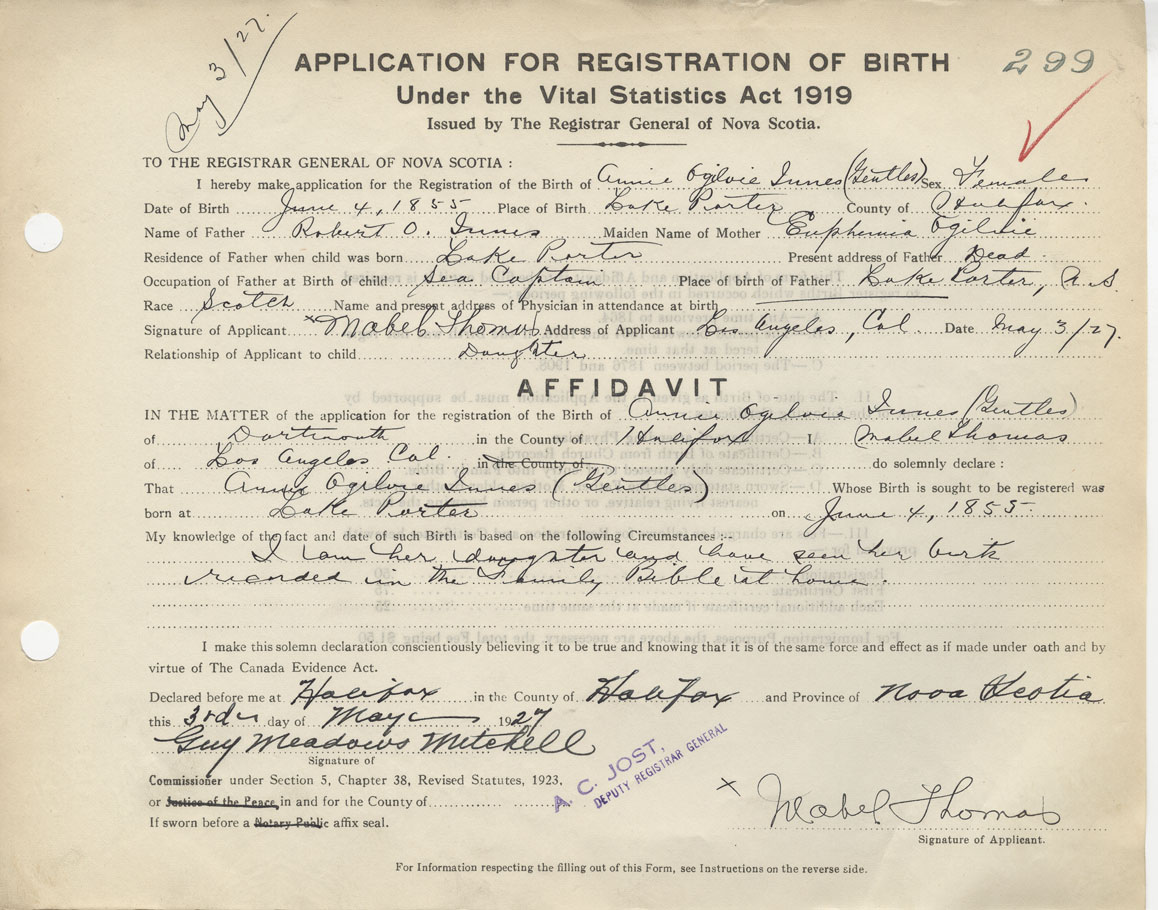 May 3/27.
299
APPLICATION FOR REGISTRATION OF BIRTH
Under the Vital Statistics Act 1919
Issued by The Registrar General of Nova Scotia.
TO THE REGISTRAR GENERAL OF NOVA SCOTIA :
I hereby make application for the Registration of the Birth of Annie Ogilvie Innes (Gentles) Sex Female
Date of Birth June 4, 1855 Place of Birth Lake Porter County of Halifax.
Name of Father Robert O. Innes Maiden Name of Mother Euphemia Ogilvie
Residence of Father when child was born Lake Porter Present address of Father Dead.
Occupation of Father at Birth of child Sea Captain Place of birth of Father Lake Porter, N.S.
Race Scotch Name and present address of Physician in attendance at birth
Signature of Applicant x Mabel Thomas Address of Applicant Los Angeles, Cal. Date May 3/27.
Relationship of Applicant to child Daughter
AFFIDAVIT
IN THE MATTER of the application for the registration of the Birth of Annie Ogilvie Innes (Gentles)
of Dartmouth in the County of Halifax I Mabel Thomas
of Los Angeles Cal. in the County of do solemnly declare :
That Annie Ogilvie Innes (Gentles) Whose Birth is sought to be registered was
born at Lake Porter on June 4, 1855
My knowledge of the fact and date of such Birth is based on the following Circumstances :-
I am her daughter and have seen her birth
recorded in the Family Bible at home.
I make this solemn declaration conscientiously believing it to be true and knowing that it is of the same force and effect as if made under oath and by
virtue of The Canada Evidence Act.
Declared before me at Halifax in the County of Halifax and Province of Nova Scotia
this 3rd day of May 1927
Guy Meadows Mitchell
Signature of
Commissioner under Section 5, Chapter 38, Revised Statutes, 1923,
or Justice of the Peace, in and for the County of
If sworn before a Notary Public affix seal.
A. C. JOST,
DEPUTY REGISTRAR GENERAL
x Mabel Thomas
Signature of Applicant.
For Information respecting the filling out of this Form, see Instructions on the reverse side.